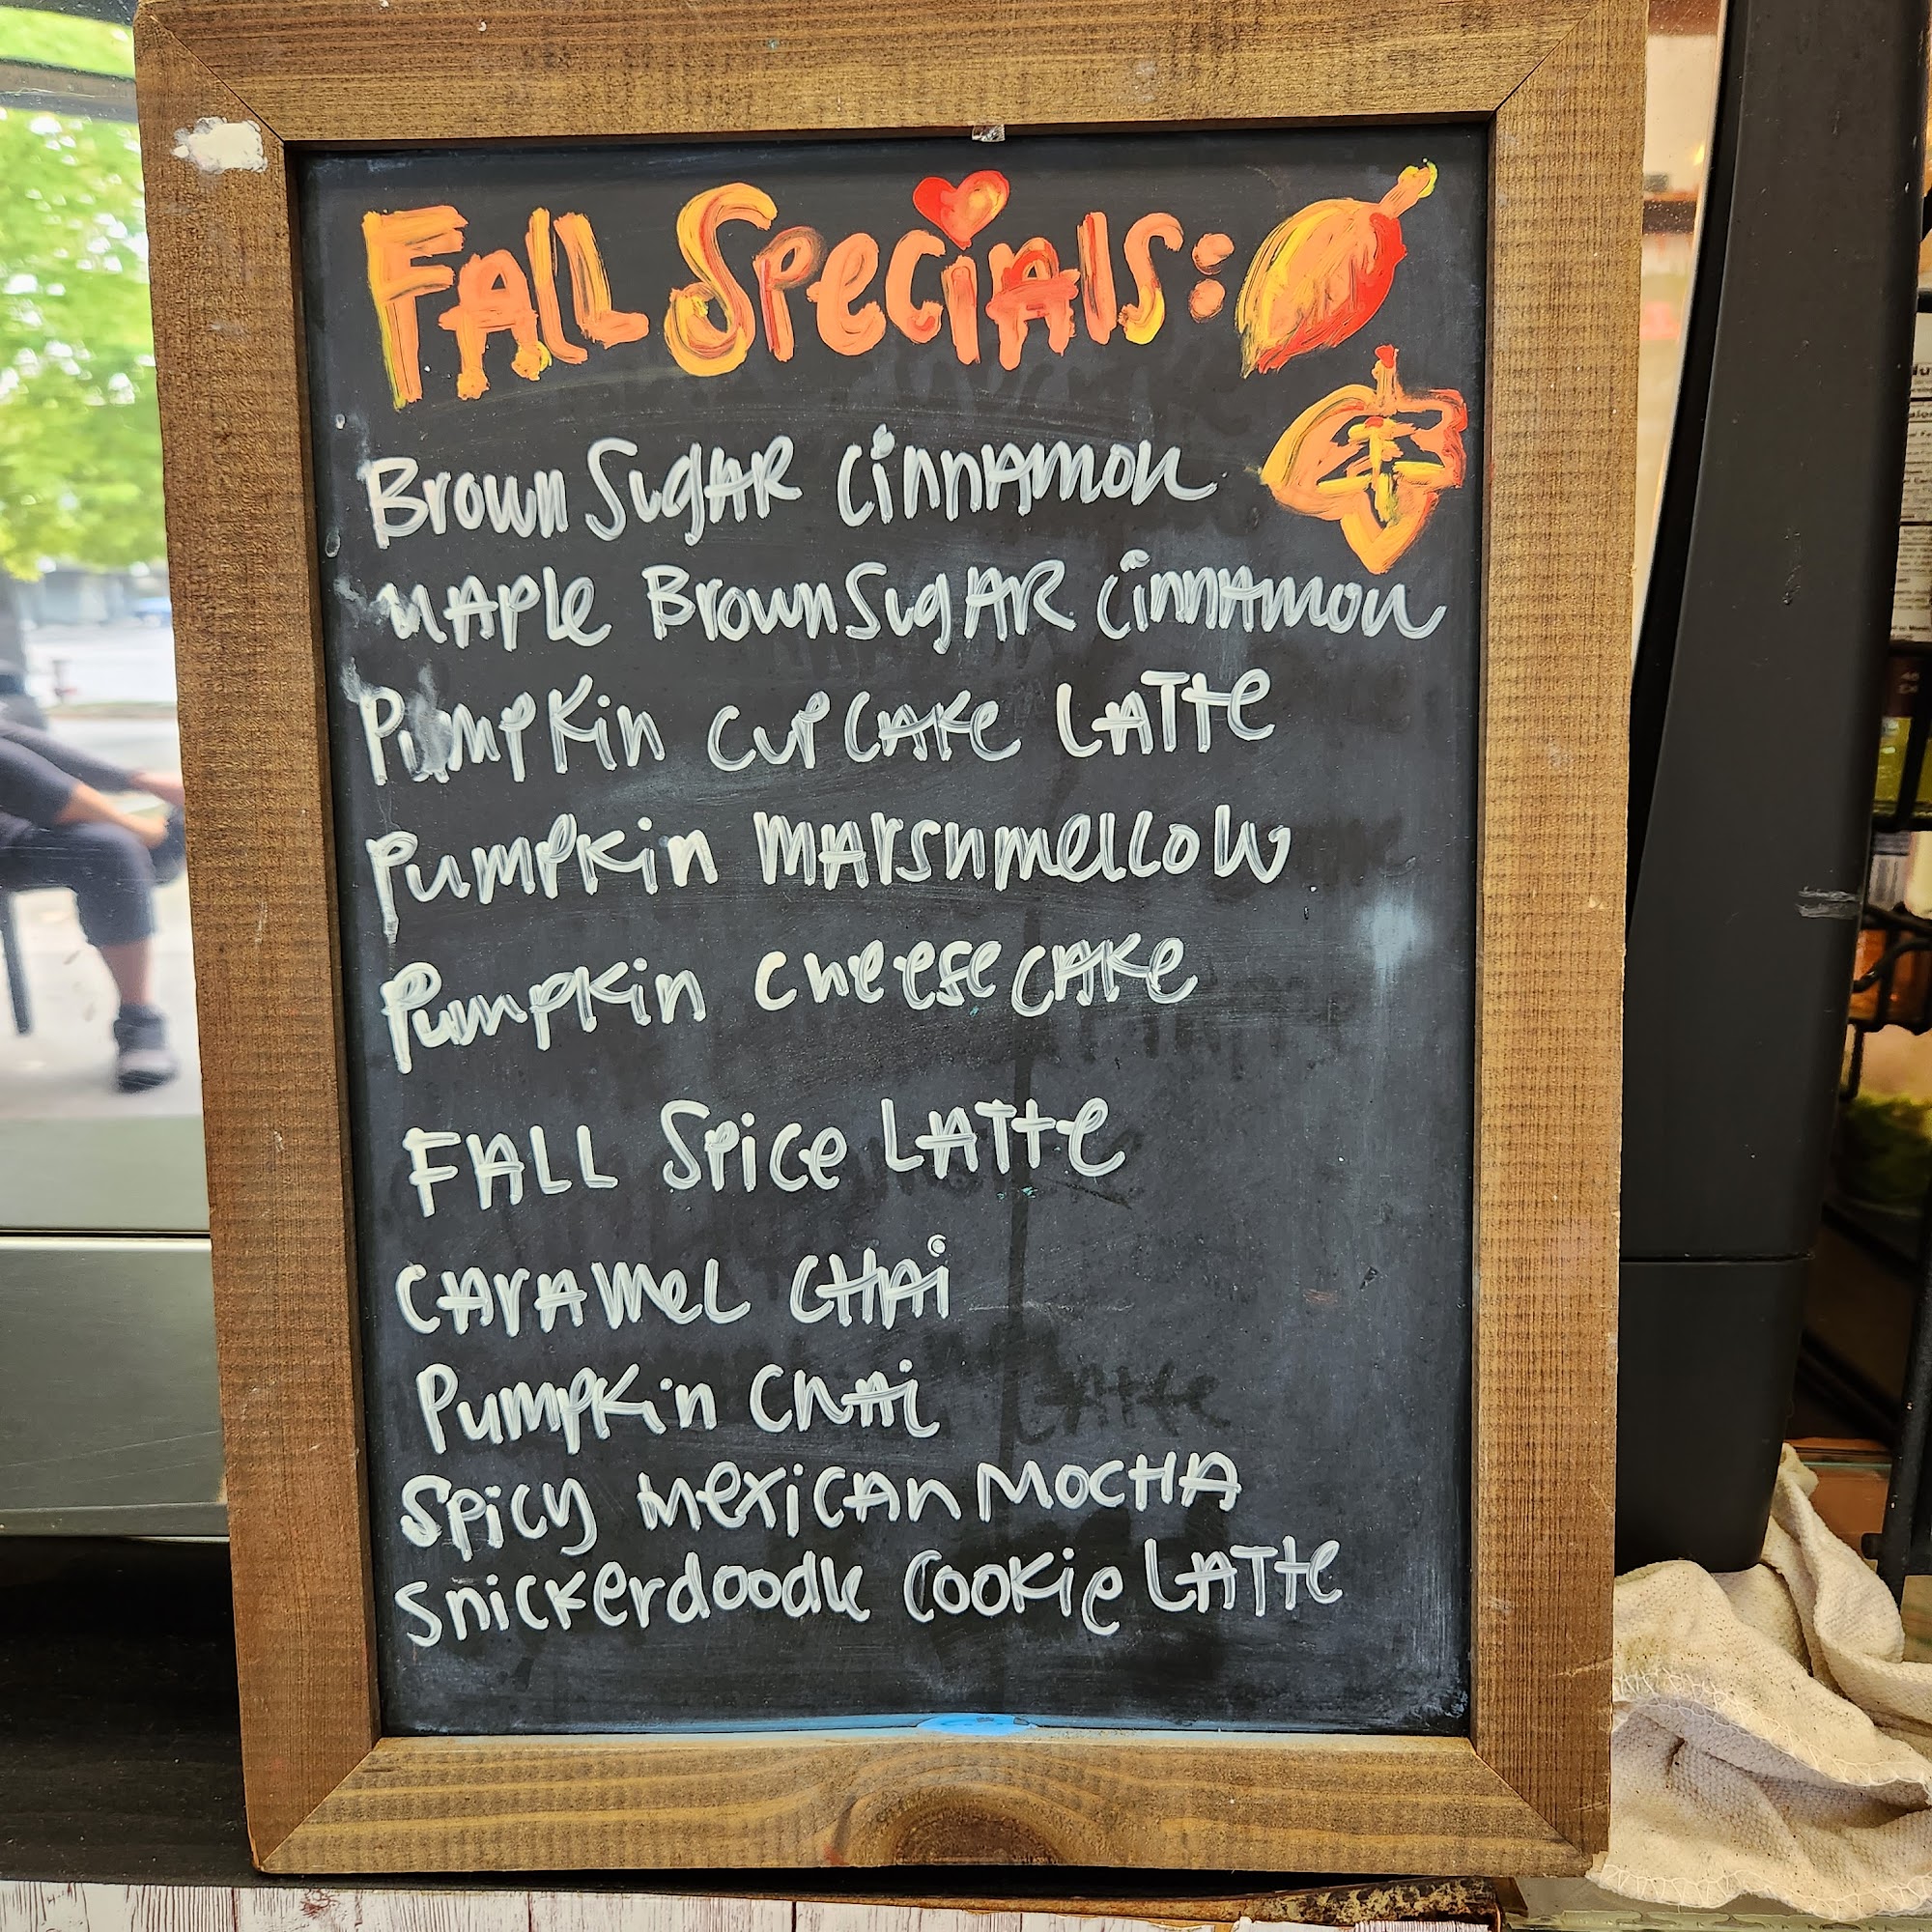 FAll SpeciAls:
Brown SugAR CinnAmon
mAple Brown SugAR CinnAmon
PumpKin CupCAKe LATTe
PumpKin mArshmellow
PumpKin cheeseCAKe
FALL Spice LATTe
CArAmeL CHAi
PumpKin ChAi
Spicy mexicAn MOCHA
Snickerdoodle Cookie LATTe
LAtte